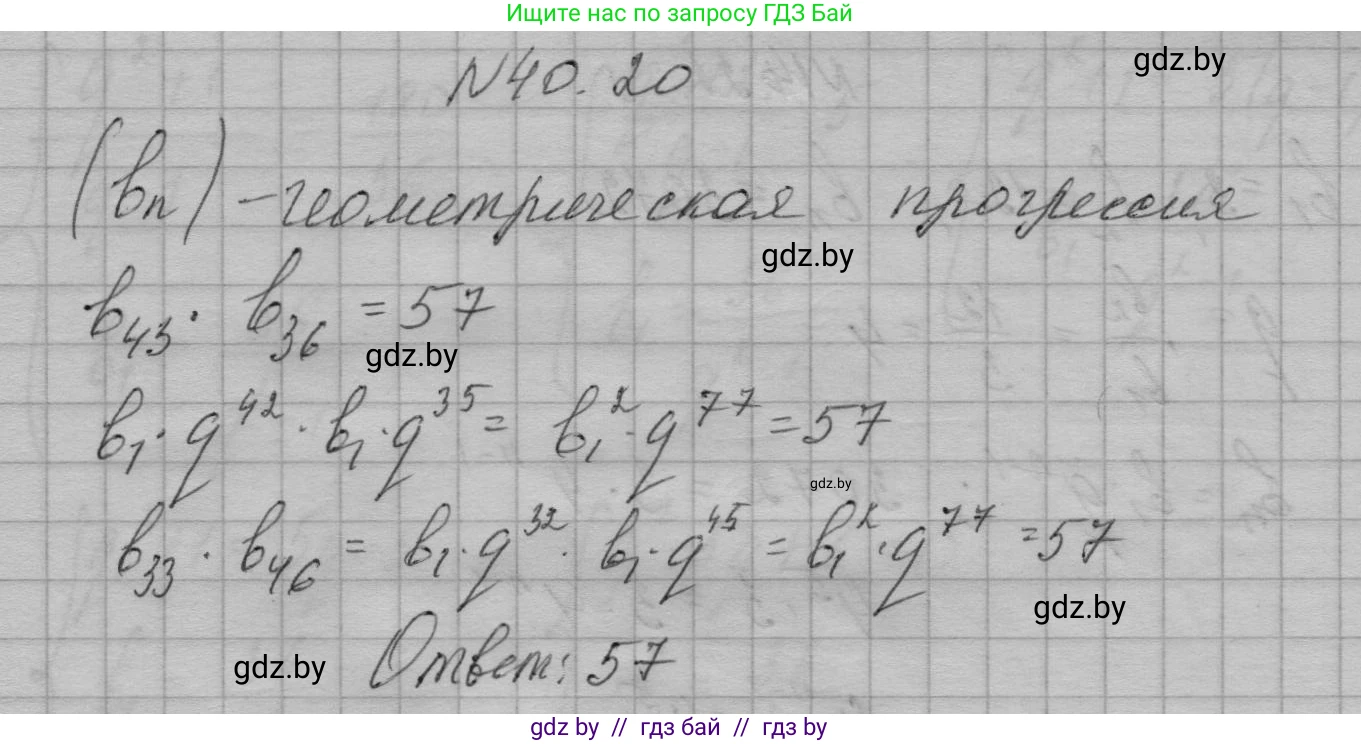 Ищите нас по запросу ГДЗ Бай
gdz.by
N40.20
(bₙ) - геометрическая прогрессия
gdz.by
b₄₃ · b₃₆ = 57
gdz.by
b₁ · q⁴² · b₁ · q³⁵ = b₁² · q⁷⁷ = 57
gdz.by
b₃₃ · b₄₆ = b₁ · q³² · b₁ · q⁴⁵ = b₁² · q⁷⁷ = 57
gdz.by
gdz.by
Ответ: 57
gdz by // гдз бай // гдз by